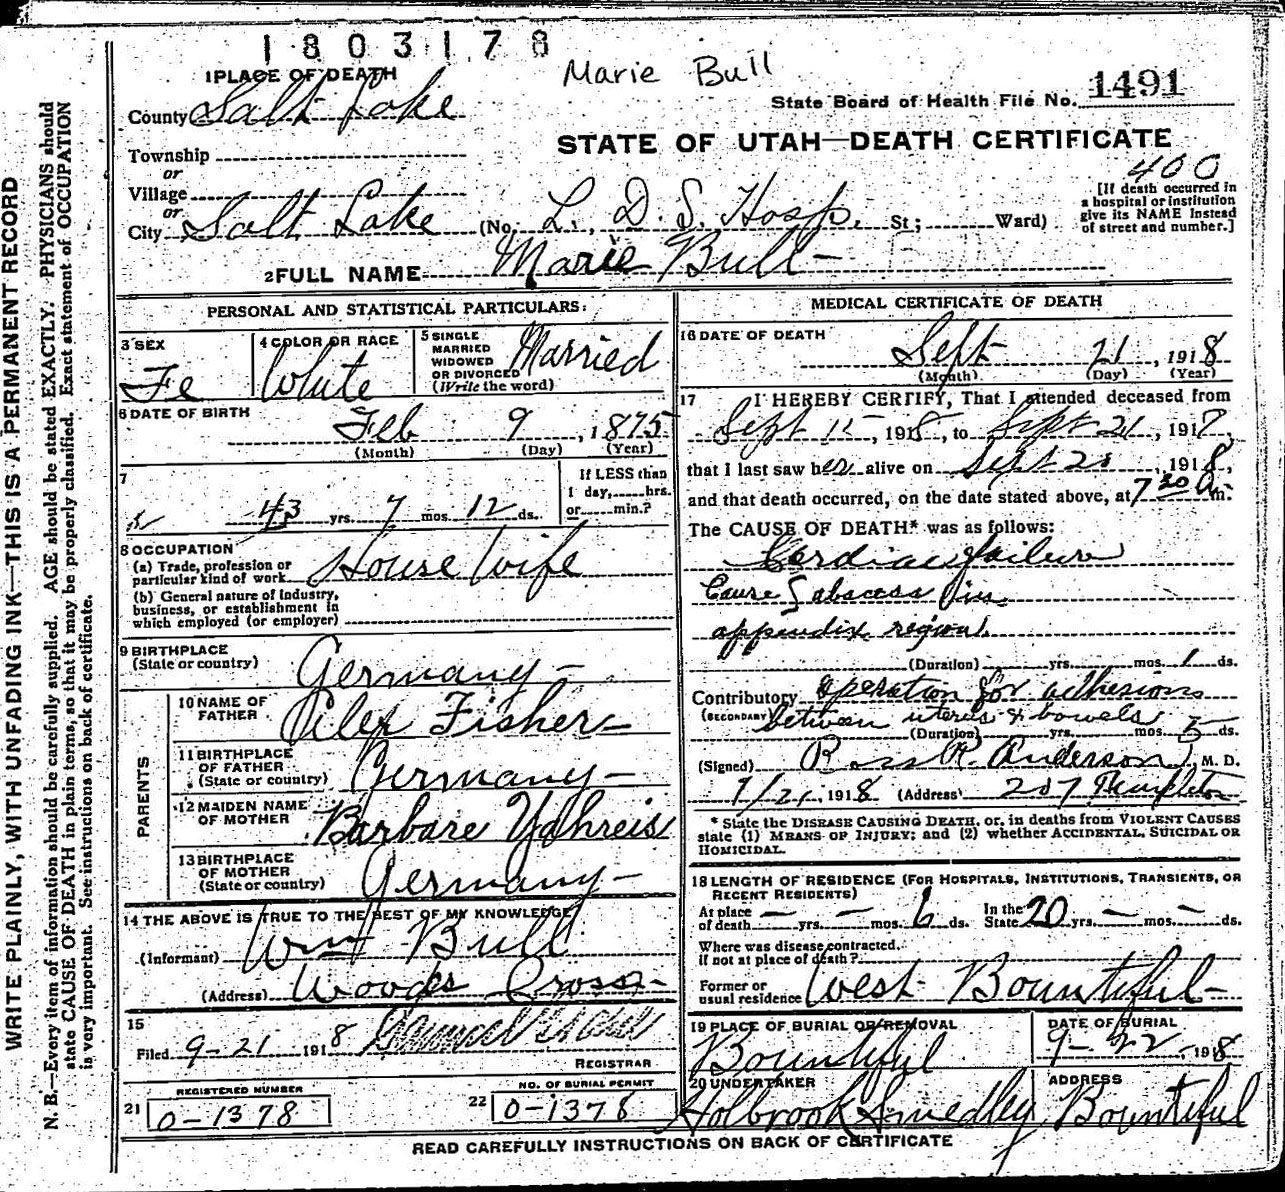 1803178
Marie Bull
1 PLACE OF DEATH
State Board of Health File No. 1491
County Salt Lake
STATE OF UTAH—DEATH CERTIFICATE
Township
or
Village
or
City Salt Lake (No. L. D. S. Hosp. St; Ward)
400
[If death occurred in
a hospital or institution
give its NAME instead
of street and number.]
2 FULL NAME Marie Bull
PERSONAL AND STATISTICAL PARTICULARS:
3 SEX
Fe
4 COLOR OR RACE
White
5 SINGLE
MARRIED
WIDOWED
OR DIVORCED
(Write the word)
Married
6 DATE OF BIRTH
Feb 9, 1875
(Month) (Day) (Year)
7
43 yrs. 7 mos. 12 ds.
If LESS than
1 day,......hrs.
or......min.?
8 OCCUPATION
(a) Trade, profession or
particular kind of work House Wife
(b) General nature of Industry,
business, or establishment in
which employed (or employer)
9 BIRTHPLACE
(State or country) Germany
PARENTS
10 NAME OF
FATHER Alex Fisher
11 BIRTHPLACE
OF FATHER
(State or country) Germany
12 MAIDEN NAME
OF MOTHER Barbare Yahreis
13 BIRTHPLACE
OF MOTHER
(State or country) Germany
14 THE ABOVE IS TRUE TO THE BEST OF MY KNOWLEDGE
(Informant) Wm Bull
(Address) Woods Cross
15
Filed 9-21 1918
REGISTRAR
REGISTERED NUMBER
21 0-1378
NO. OF BURIAL PERMIT
22 0-1378
MEDICAL CERTIFICATE OF DEATH
16 DATE OF DEATH
Sept 21, 1918
(Month) (Day) (Year)
17 I HEREBY CERTIFY, That I attended deceased from
Sept 15, 1918, to Sept 21, 1917,
that I last saw her alive on Sept 20, 1918,
and that death occurred, on the date stated above, at 7 30 a m.
The CAUSE OF DEATH* was as follows:
Cardiac failure
Cause abscess in
appendix region.
(Duration) yrs. mos. 1 ds.
Contributory operation for adhesions
(SECONDARY) between uterus & bowels
(Duration) yrs. mos. 5 ds.
(Signed) Ross R. Anderson, M. D.
9/21, 1918 (Address) 207 Templeton
* State the DISEASE CAUSING DEATH, or, in deaths from VIOLENT CAUSES
state (1) MEANS OF INJURY; and (2) whether ACCIDENTAL, SUICIDAL OR
HOMICIDAL.
18 LENGTH OF RESIDENCE (FOR HOSPITALS, INSTITUTIONS, TRANSIENTS, OR
RECENT RESIDENTS)
At place
of death — yrs. — mos. 6 ds.
In the
State 20 yrs. — mos. — ds.
Where was disease contracted.
if not at place of death?
Former or
usual residence West Bountiful
19 PLACE OF BURIAL OR REMOVAL
Bountiful
DATE OF BURIAL
9-22-1918
20 UNDERTAKER
Holbrook Smedley
ADDRESS
Bountiful
READ CAREFULLY INSTRUCTIONS ON BACK OF CERTIFICATE
WRITE PLAINLY, WITH UNFADING INK—THIS IS A PERMANENT RECORD
N. B.—Every item of information should be carefully supplied. AGE should be stated EXACTLY. PHYSICIANS should
state CAUSE OF DEATH in plain terms, so that it may be properly classified. Exact statement of OCCUPATION
is very important. See instructions on back of certificate.